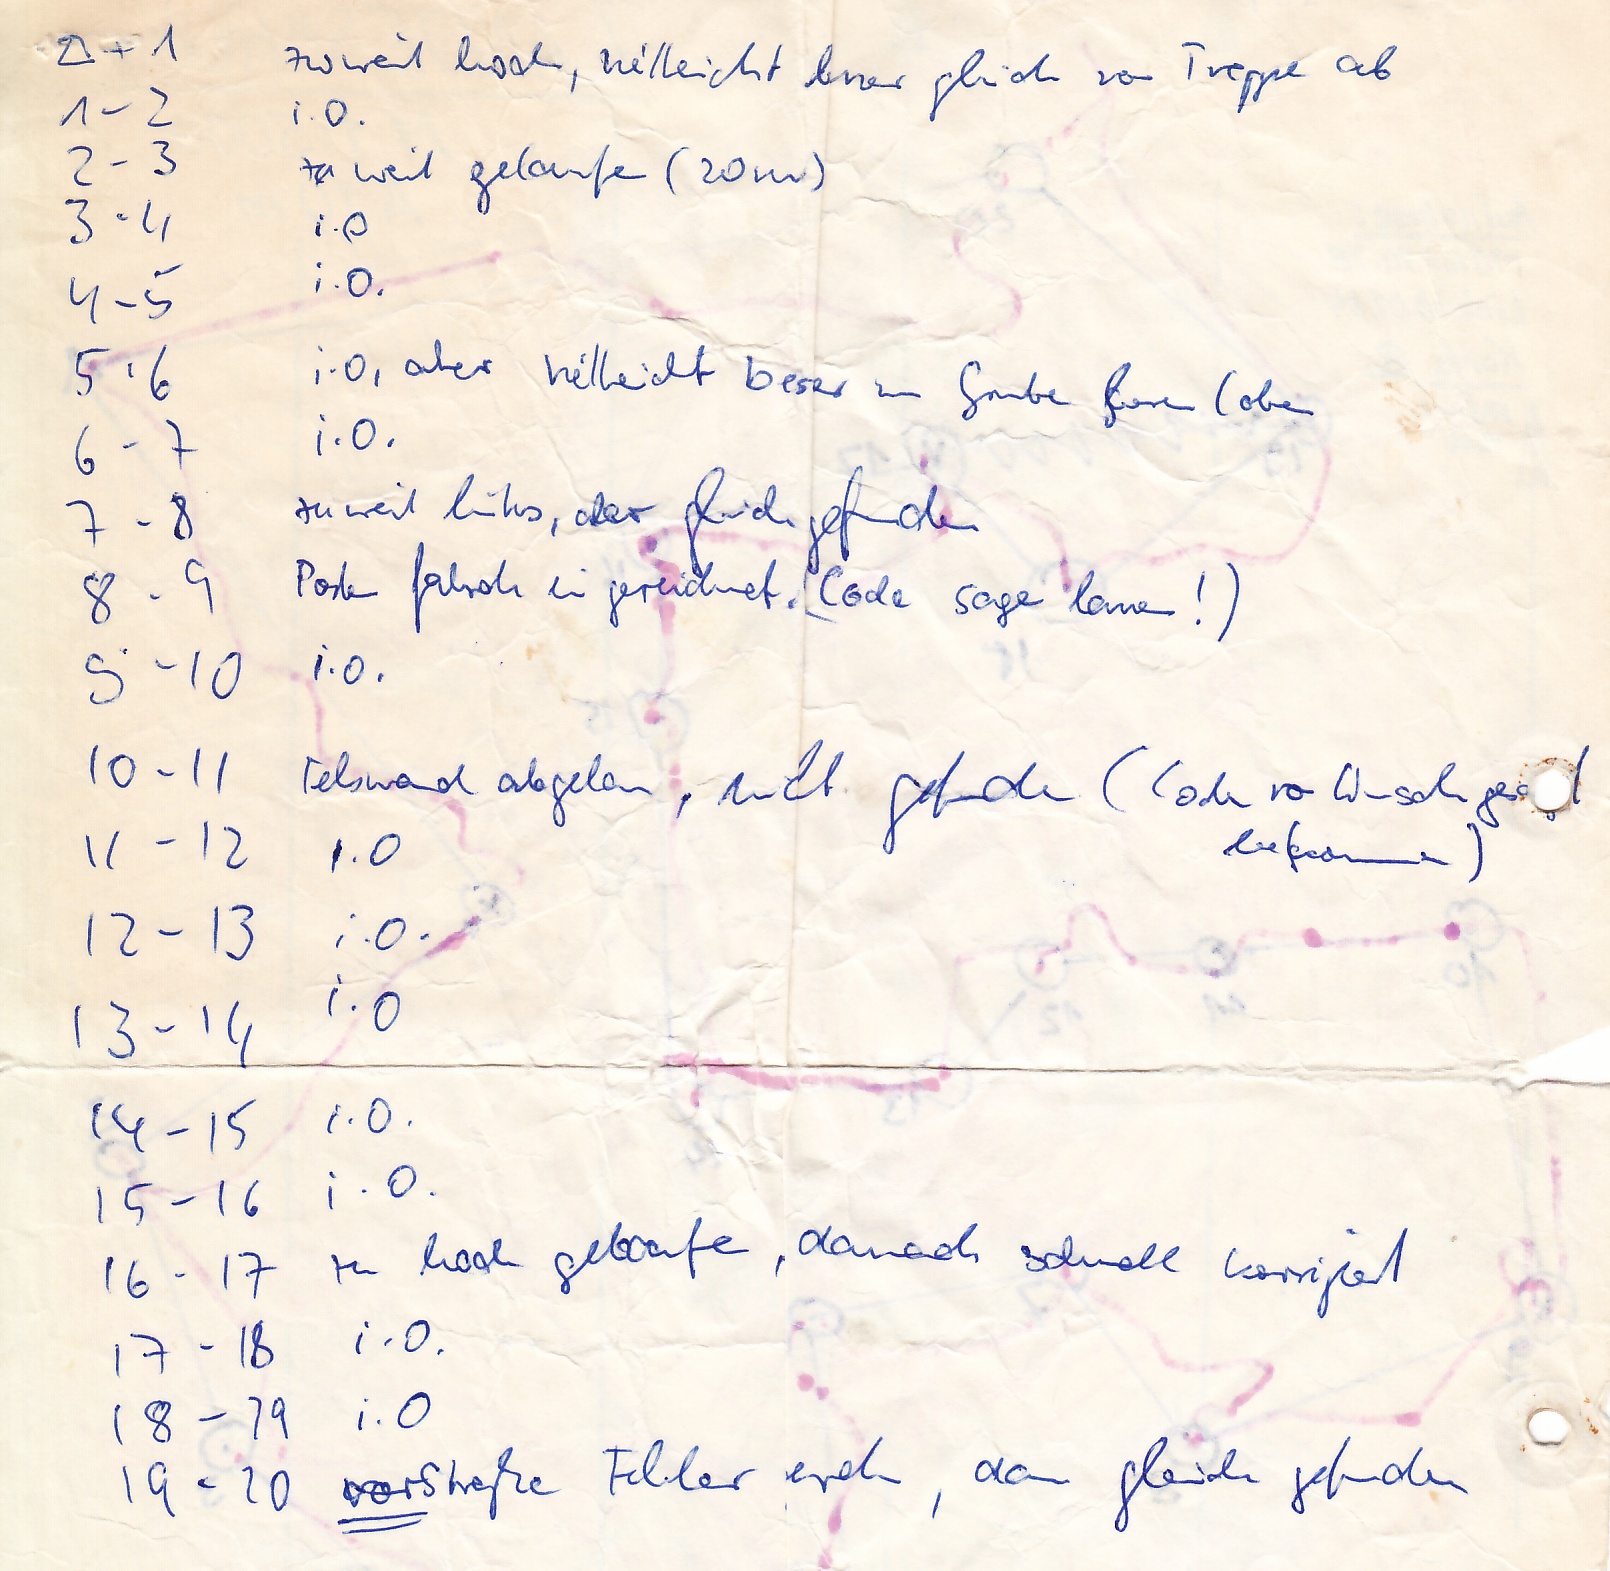 1 zuweit hoch, vielleicht besser gleich von Treppe ab
1-2 i.O.
2-3 zu weit gelaufe (20m)
3-4 i.O
4-5 i.O.
5-6 i.O, aber vielleicht besser Grube (oben
6-7 i.O.
7-8 zuweit links, aber gleich gefunden
8-9 Posten falsch eingezeichnet. (Code sage lassen!)
9-10 i.O.
10-11 Felswand abgelaufen, nicht gefunden (Code von gesagt
bekommen)
11-12 i.O
12-13 i.O.
13-14 i.O
14-15 i.O.
15-16 i.O.
16-17 zu hoch gelaufe, danach schnell korrigiert
17-18 i.O.
18-19 i.O
19-20 vor Straße Fehler, dann gleich gefunden